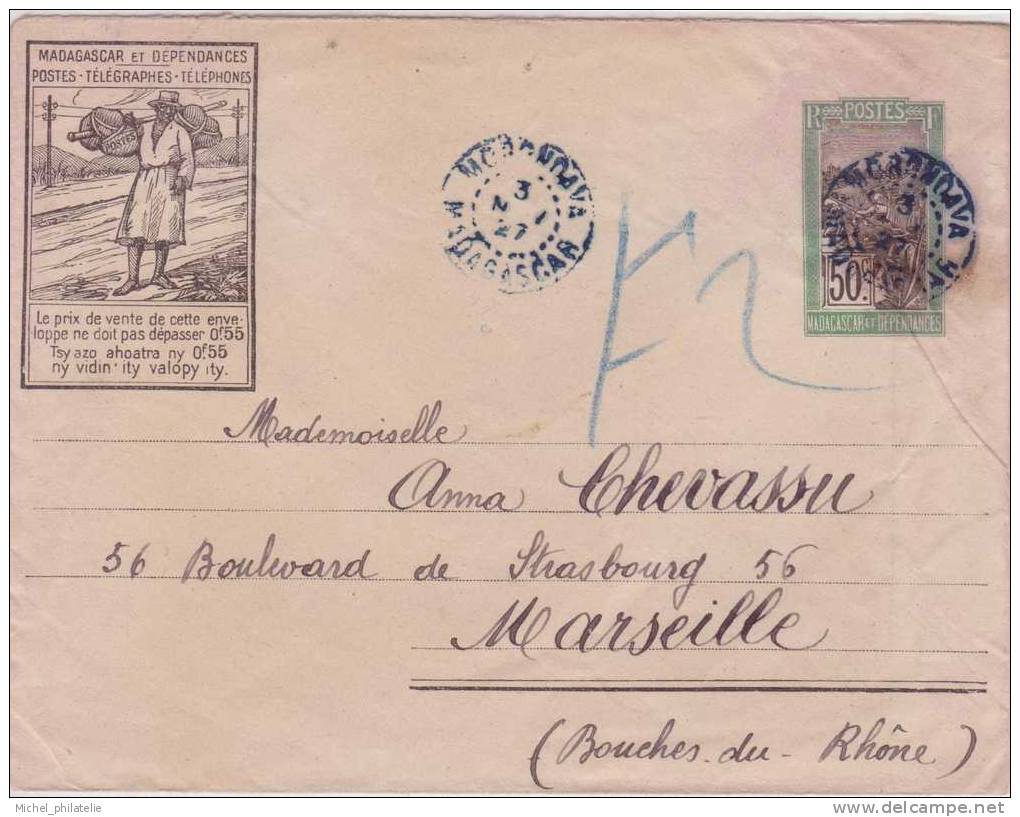 MADAGASCAR ET DÉPENDANCES
POSTES - TÉLÉGRAPHES - TÉLÉPHONES
POSTES
Le prix de vente de cette enve-
loppe ne doit pas dépasser 0f55
Tsy azo ahoatra ny 0f55
ny vidin' ity valopy ity.
MORONDAVA
3
27
MADAGASCAR
R POSTES F
50c
MADAGASCAR ET DÉPENDANCES
MORONDAVA
3
Mademoiselle
Anna Chevassu
56 Boulevard de Strasbourg 56
Marseille
(Bouches-du-Rhône)
Michel_philatelie
delcampe.net